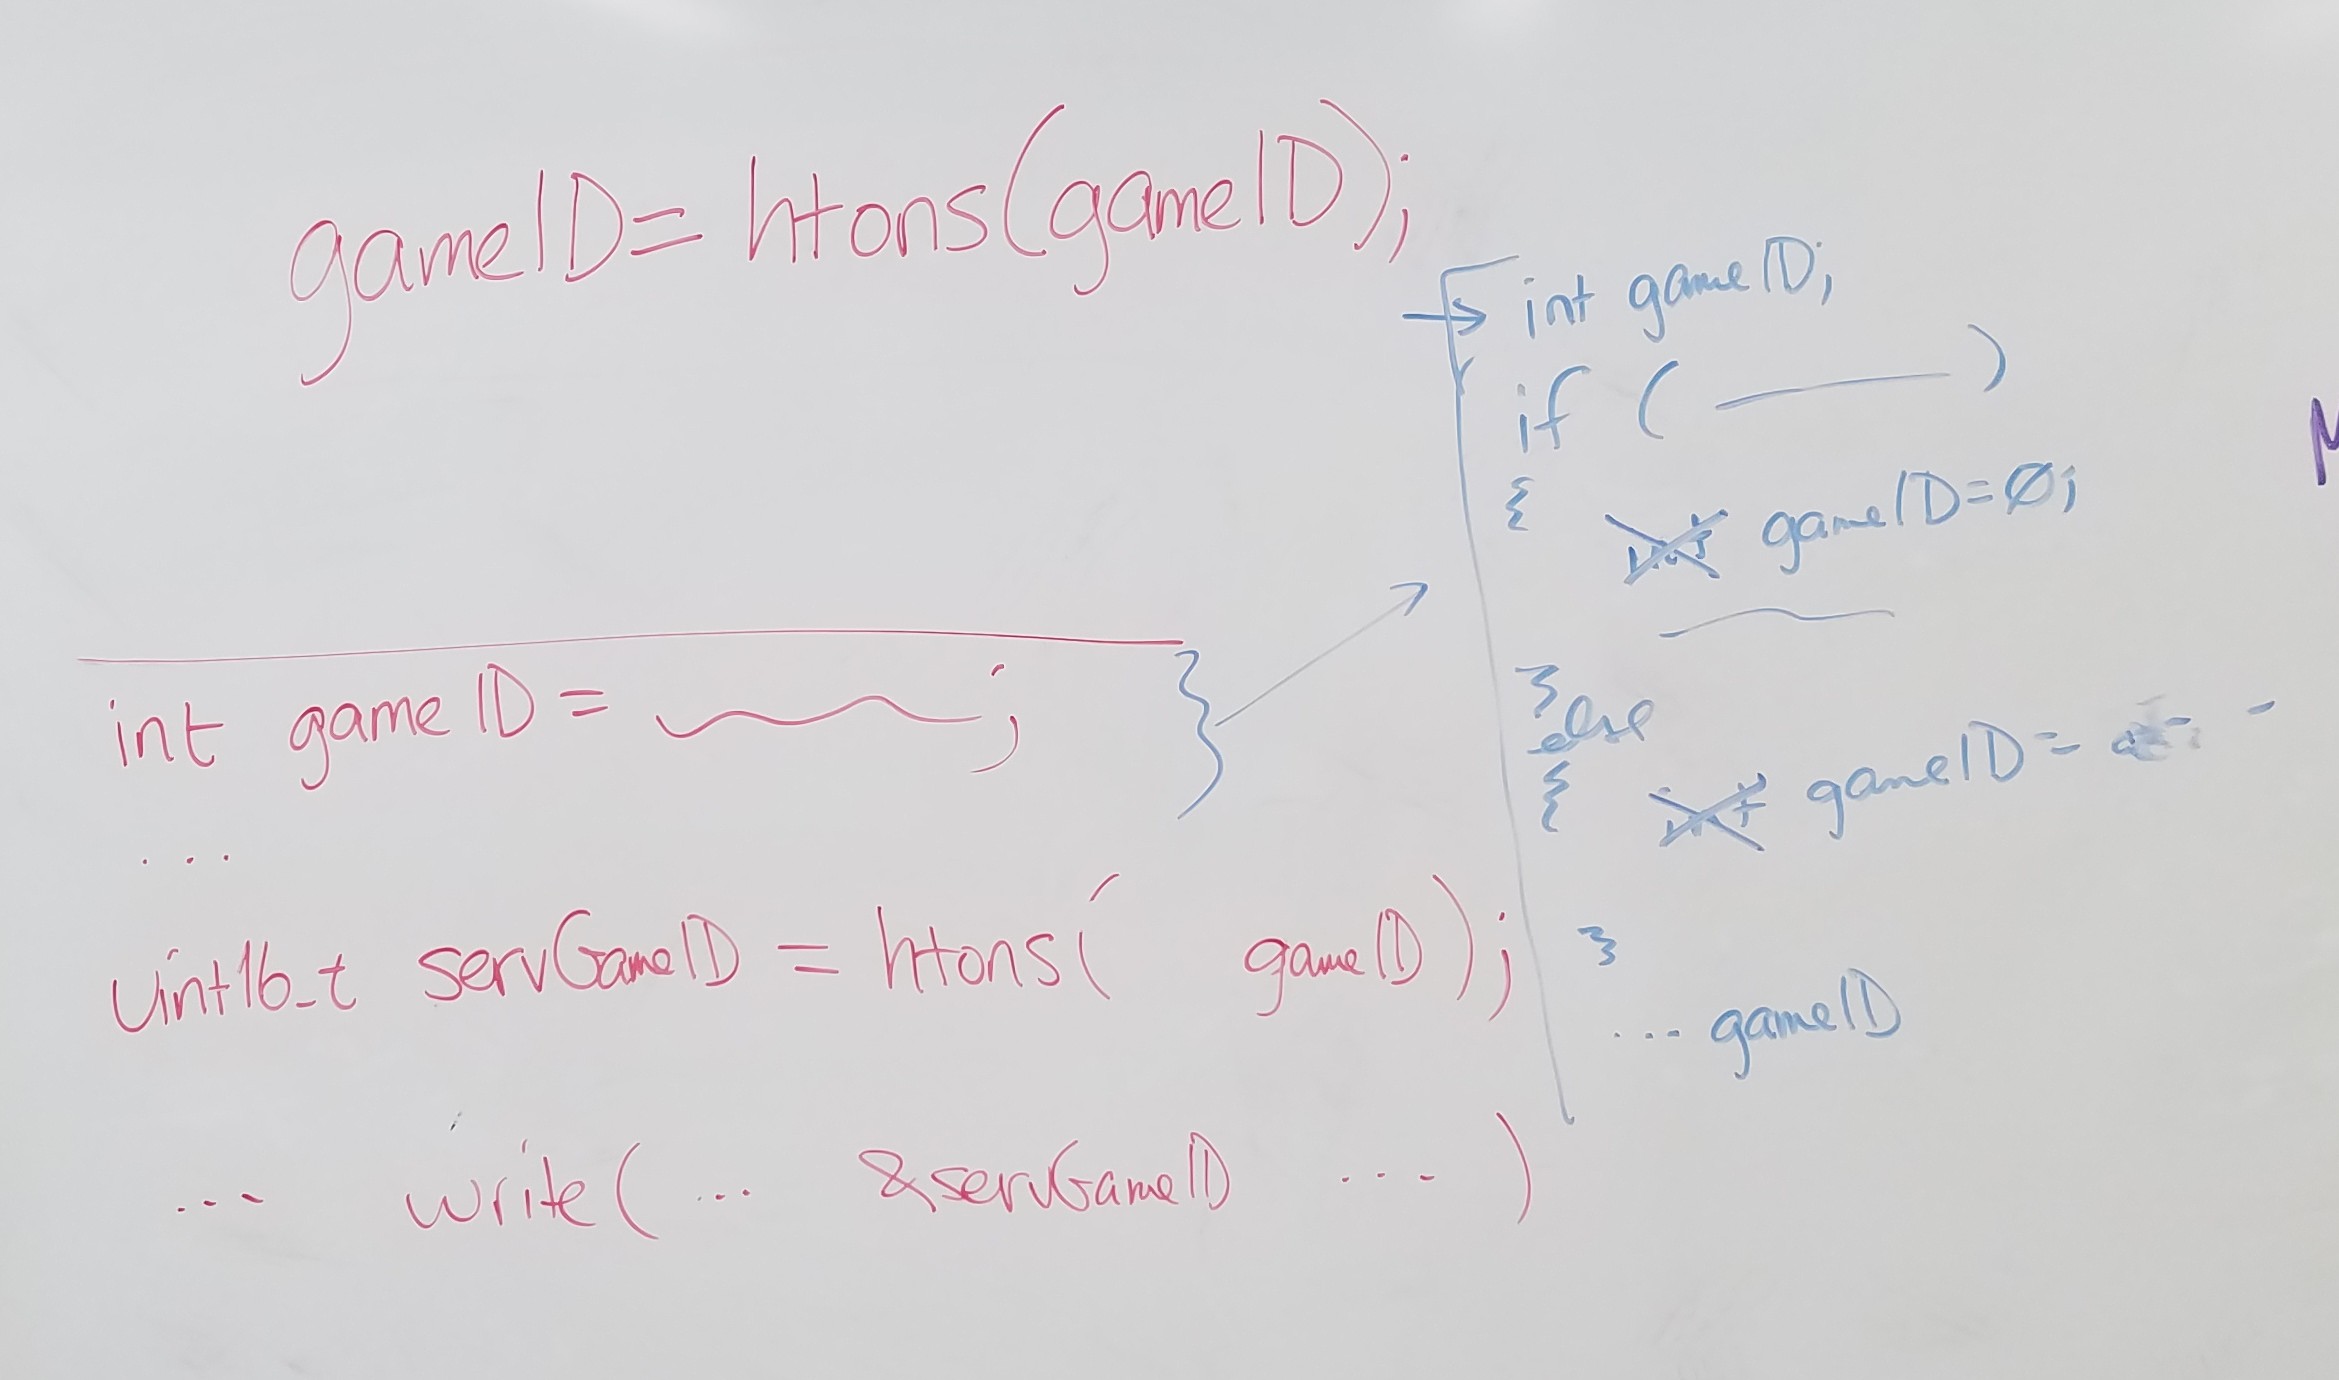 gameID = htons(gameID);
int gameID = ;
...
uint16_t servGameID = htons( gameID);
... write(... &servGameID ....)
int gameID;
if ( )
{ int gameID=Ø;
} else
{ int gameID=
}
... gameID